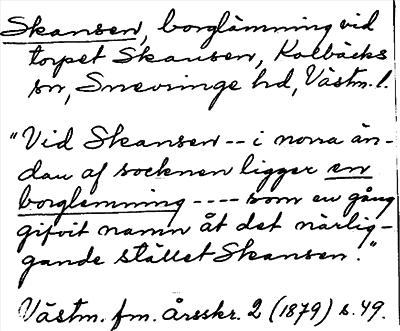 Skansen, borglämning vid
torpet Skansen, Kolbäcks
sn, Snevringe hd, Västm. l.
"Vid Skansen -- i norra än-
dan af socknen ligger en
borglemning ---- som en gång
gifvit namn åt det närlig-
gande stället Skansen."
Västm. fm. årsskr. 2 (1879) s. 49.